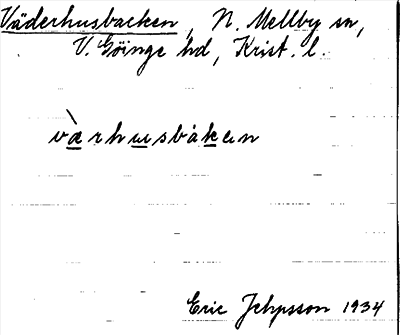 Väderhusbacken, N. Mellby sn,
V. Göinge hd, Krist. l.
vàrhusbáken
Eric Jepsson 1934